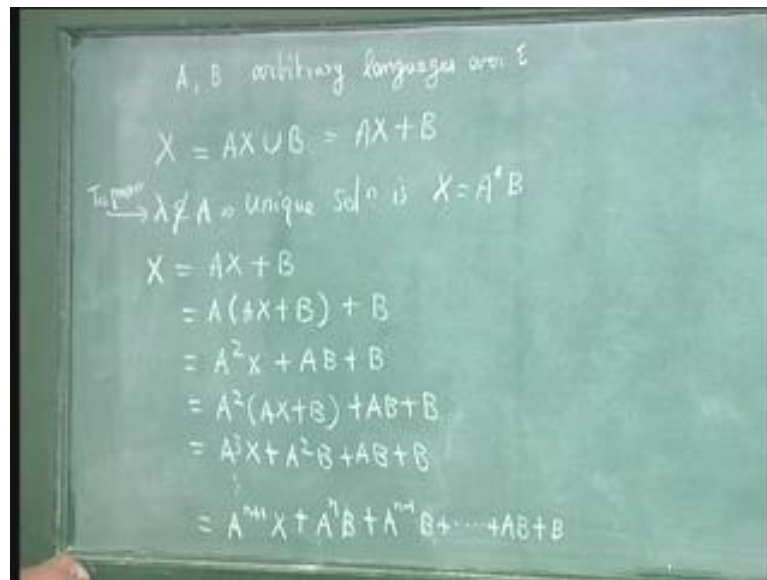 A, B arbitrary languages over Σ
X = AX ∪ B = AX + B
To prove → λ ∉ A ⇒ unique solⁿ is X = A*B
X = AX + B
= A(AX+B) + B
= A²X + AB + B
= A²(AX+B) + AB + B
= A³X + A²B + AB + B
⋮
= Aⁿ⁺¹X + AⁿB + Aⁿ⁻¹B + ⋯ + AB + B